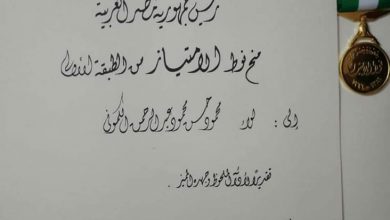 رئيس جمهورية مصر العربية
منح نوط الامتياز من الطبقة الأولى
إلى : لواء محمود حسن محمود عبد الرحمن الكمونى
تقديرًا لأدائه الملحوظ وجهوده المميز